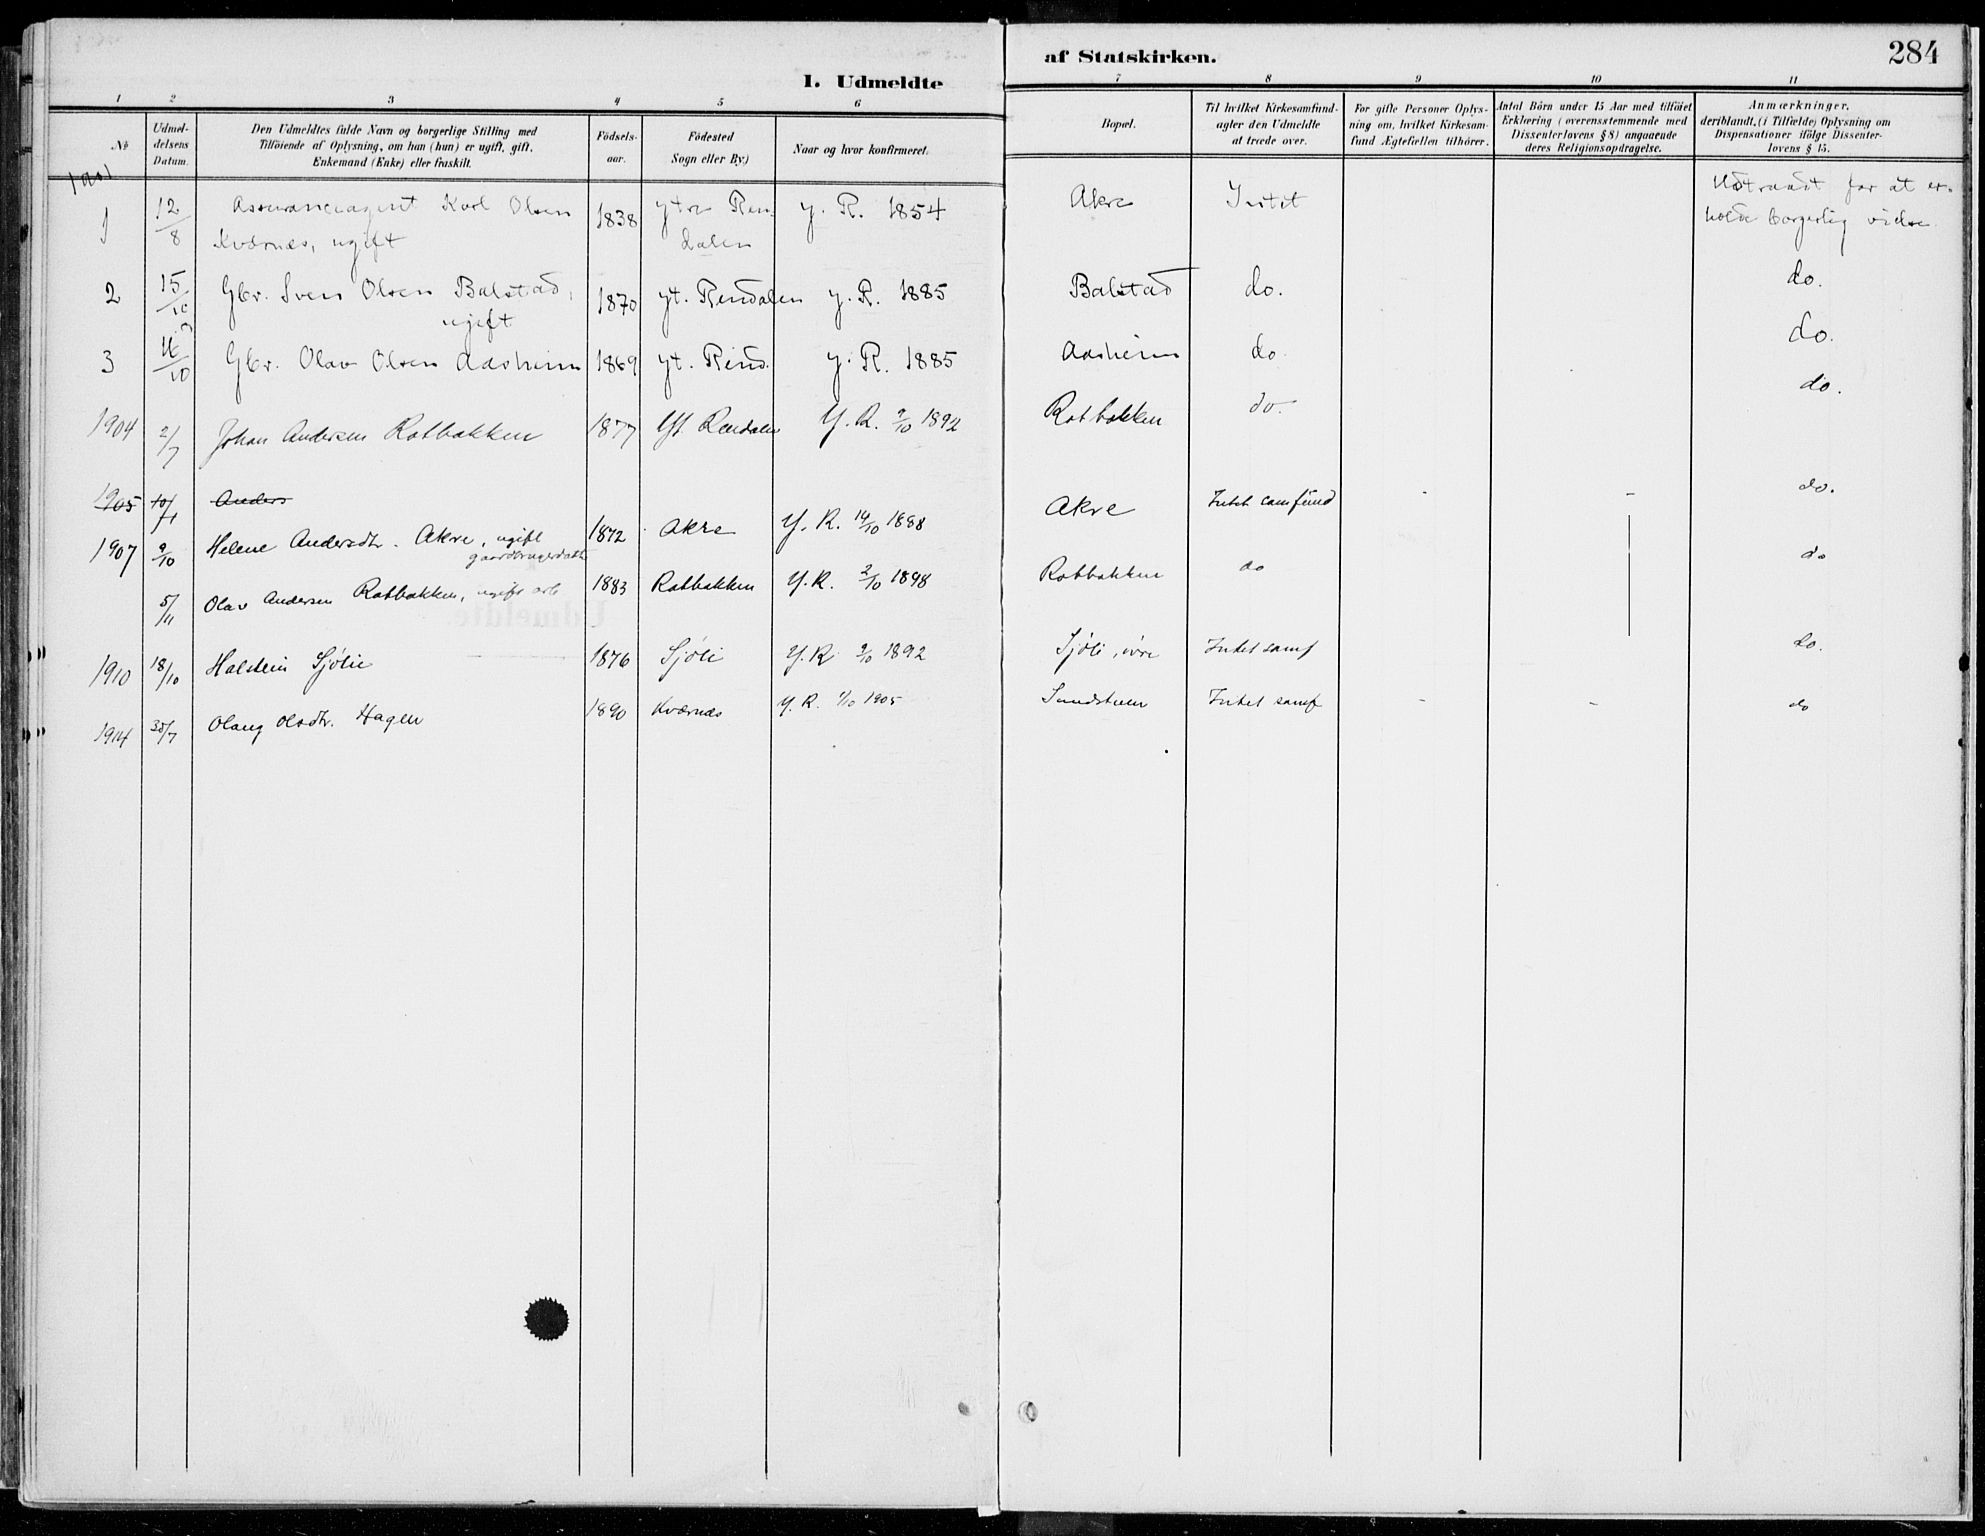 1. Udmeldte af Statskirken. 284
1 2 3 4 5 6 7 8 9 10 11
№
Udmel-
delsens
Datum.
Den Udmeldtes fulde Navn og borgerlige Stilling med
Tilföiende af Oplysning, om han (hun) er ugift, gift,
Enkemand (Enke) eller fraskilt.
Födsels-
aar.
Födested
Sogn eller By.)
Naar og hvor konfirmeret.
Bopæl.
Til hvilket Kirkesamfund-
agter den Udmeldte
at træde over.
For gifte Personer Oplys-
ning om, hvilket Kirkesam-
fund Ægtefællen tilhörer.
Antal Börn under 15 Aar med tilföiet
Erklæring (overensstemmende med
Dissenterlovens § 8) angaaende
deres Religionsopdragelse.
Anmærkninger,
deriblandt, (i Tilfælde) Oplysning om
Dispensationer ifölge Dissenter-
lovens § 15.
1901
1 12/8 Assuranceagent Karl Olsen 1838 ytre Ren- y. R. 1854 Akre Intet Udtraadt for at er-
Kværnes, ugift dalen holde borgerlig vielse
2 15/10 Gbr. Sven Olsen Balstad, 1870 yt. Rendalen y. R. 1885 Balstad do. do.
ugift
3 16/10 Gbr. Olav Olsen Aasheim 1869 yt. Rend. y. R. 1885 Aasheim do. do.
1904 2/7 Johan Andersen Ratbakken 1877 Yt. Rendalen Y. R. 2/10 1892 Ratbakken do. do.
1905 10/11 Anders
1907 9/10 Helene Andersdtr. Akre, ugift 1872 Akre Y. R. 14/10 1888 Akre Intet samfund - - do.
gaardbrugerdatter
5/11 Olav Andersen Ratbakken, ugift arb 1883 Ratbakken Y. R. 2/10 1898 Ratbakken do do
1910 18/10 Halstein Sjölie 1876 Sjöli Y. R 2/10 1892 Sjöli, övre Intet samf do.
1914 30/7 Olaug Olsdtr. Hagen 1890 Kværnes Y. R. 1/10 1905 Sundstuen Intet samf - - do